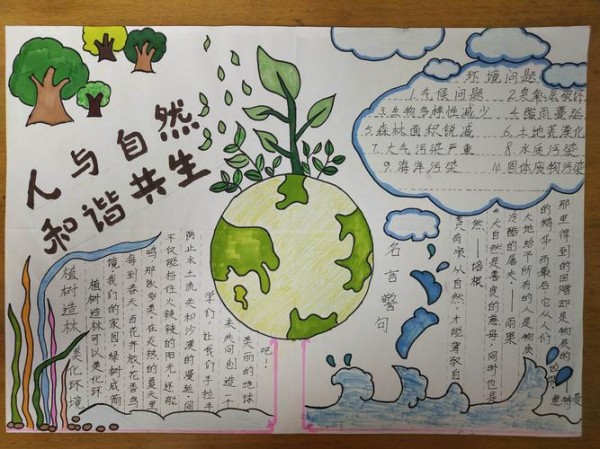 人与自然
和谐共生
环境问题
1.气候问题 2.臭氧层破坏
3.生物多样性减少 4.酸雨蔓延
5.森林面积锐减 6.土地荒漠化
7.大气污染严重 8.水质污染
9.海洋污染 10.固体废物污染
植树造林 美化环境
植树造林可以美化环
境我们的家园。绿树成荫
每到春天百花齐放,花香鸟
鸣,在炎热的夏天里
不仅能挡住火辣辣的阳光,还能
防止水土流失和沙漠的蔓延。同
学们,让我们手拉手
来共同创造一个
美丽的地球
吧!
名言警句
从自然,才能驾驭自
然。——培根
大自然是善良的慈母,同时也是
冷酷的屠夫。雨果
大地给予所有的人是物质
的精华,而最后,它从人们
那里得到的回赠却是物质的
垃圾。